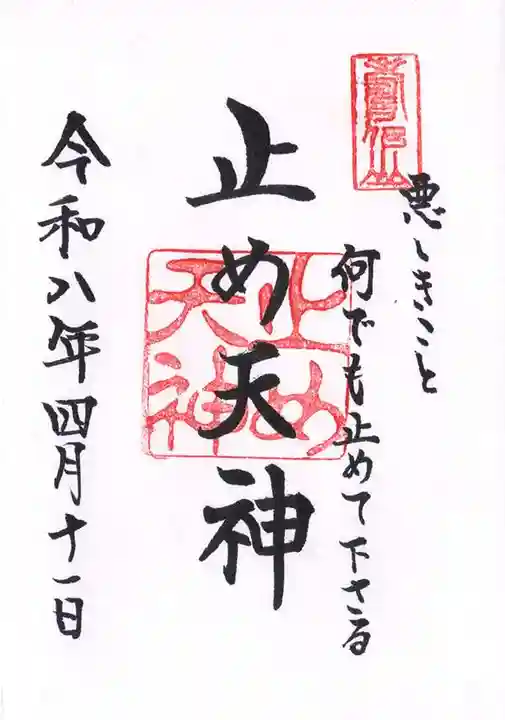 悪しきこと
何でも止めて下さる
止め天神
止め
天神
令和八年四月十一日